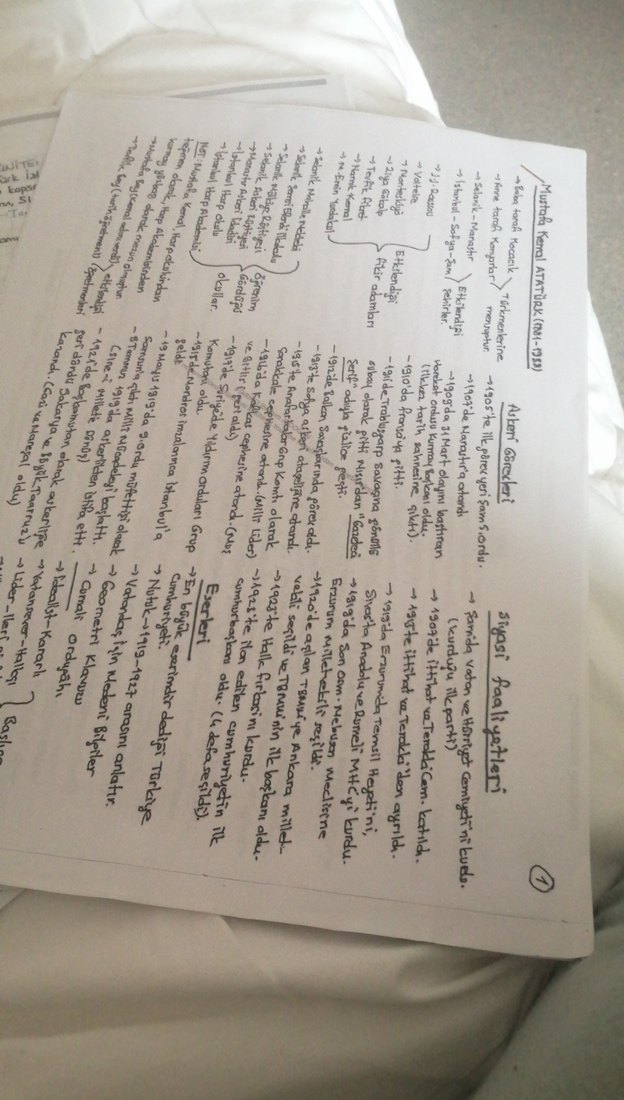 Mustafa Kemal ATATÜRK (1881-1938)
→ Baba tarafı Kocacık
→ Anne tarafı Konyarlar
Türkmenlerine mensuptur.
→ Selanik - Manastır
→ İstanbul - Sofya - Şam
Etkilendiği şehirler.
→ J.J. Rousseau
→ Voltaire
→ Montesquieu
→ Ziya Gökalp
→ Tevfik Fikret
→ Namık Kemal
→ M. Emin Yurdakul
Etkilendiği
fikir adamları
→ Selanik Mahalle Mektebi
→ Selanik Şemsi Efendi İlkokulu
→ Selanik Mülkiye Rüştiyesi
→ Selanik Askeri Rüştiyesi
→ Manastır Askeri İdadisi
→ İstanbul Harp Okulu
→ İstanbul Harp Akademisi
Öğrenim
Gördüğü
okullar.
NOT: Mustafa Kemal, Harp okulundan
teğmen olarak, Harp Akademisinden
kurmay yüzbaşı olarak mezun olmuştur.
→ Mustafa Bey (Kemal adını verdi)
→ Tevfik Bey (Tarih öğretmeni)
etkilendiği
öğretmenleri
Askeri Görevleri
- 1905'te ilk görev yeri Şam 5. ordu.
→ 1907'de Manastır'a atandı
→ 1909'da 31 Mart olayını bastıran
Hareket ordusu kurmay başkanı oldu.
(ilk kez tarih sahnesine çıktı).
- 1910'da Fransa'ya gitti.
- 1911'de Trablusgarp savaşına gönüllü
subay olarak gitti Mısır'dan "Gazeteci
Şerif" adıyla gizlice geçti.
- 1912'de Balkan Savaşlarında görev aldı.
- 1913'te Sofya askeri ataşeliğine atandı.
- 1915'te Anafartalar Grup Komt. olarak
Çanakkale cephesine atandı. (Milli lider)
- 1916'da Kafkas cephesine atandı. (Muş
ve Bitlis'i geri aldı)
- 1917'de Suriye'de Yıldırım orduları Grup
Komutanı oldu.
- 1918'de Mondros imzalanınca İstanbul'a
geldi
- 19 Mayıs 1919'da 9. ordu müfettişi olarak
Samsun'a çıktı. Milli Mücadeleyi başlattı.
- 8 Temmuz 1919'da askerlikten istifa etti.
(Sine-i Millete Döndü)
- 1921'de Başkomutan olarak askerliğe
geri döndü Sakarya ve Büyük Taarruz'u
kazandı. (Gazi ve Mareşal oldu)
Siyasi faaliyetleri
→ Şam'da Vatan ve Hürriyet Cemiyeti'ni kurdu.
(kurduğu ilk parti)
→ 1907'de İttihat ve Terakki Cem. katıldı.
→ 1919'da Erzurum'da Temsil Heyeti'ni,
Sivas'ta Anadolu ve Rumeli MHC'yi kurdu.
→ 1919'da Son Osm. Mebusan Meclisine
Erzurum Milletvekili seçildi.
→ 1920'de açılan TBMM'ye Ankara millet-
vekili seçildi ve TBMM'nin ilk başkanı oldu.
→ 1923'te Halk Fırkası'nı kurdu.
→ 1923'te ilan edilen cumhuriyetin ilk
cumhurbaşkanı oldu. (4 defa seçildi)
Eserleri
→ En büyük eserimdir dediği Türkiye
Cumhuriyeti
→ Nutuk → 1919-1927 arasını anlatır.
→ Vatandaş için Medeni Bilgiler
→ Geometri Klavuzu
→ Cumalı ordugahı
→ İdealist - Kararlı
→ Vatansever - Halkçı
→ Lider - İleri
1